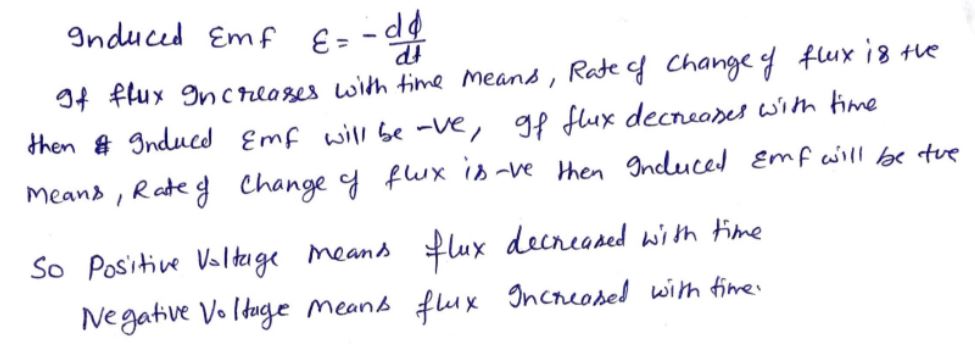 Induced Emf ε = - dϕ/dt
If flux Increases with time means, Rate of change of flux is +ve
then Induced Emf will be -ve, If flux decreases with time
means, Rate of change of flux is -ve then Induced Emf will be +ve
So Positive Voltage means flux decreased with time
Negative Voltage means flux Increased with time.